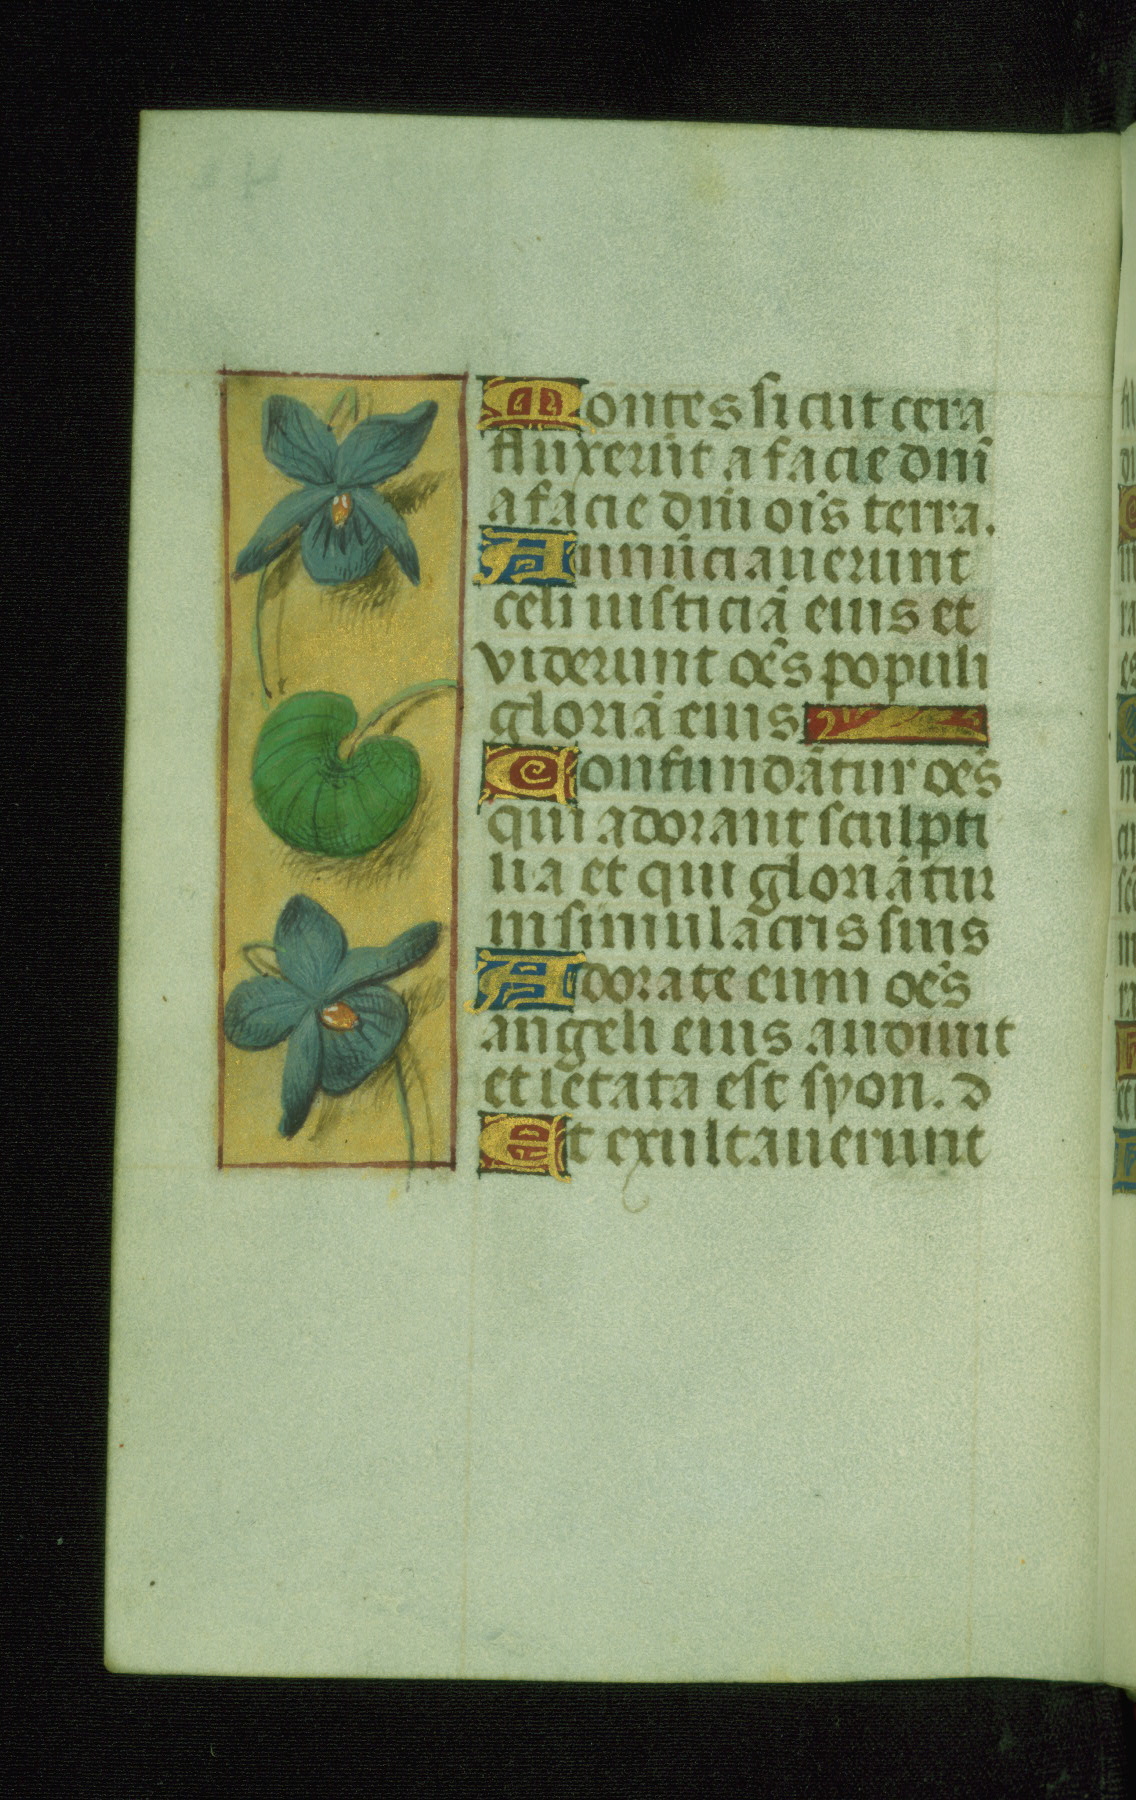 Montes sicut cera
fluxerūt a facie dnī
a facie dnī oīs terra.
Annūciauerunt
celi iusticiā eius et
viderunt oēs populi
gloriā eius
Confundātur oēs
qui adorant sculpti
lia et qui gloriātur
in simulacris suis
Adorate eum oēs
angeli eius audiuit
et letata est syon. ↄ
Et exultauerunt